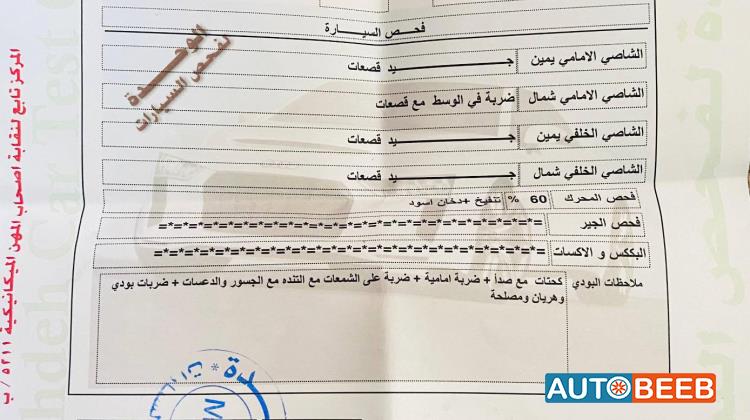 فحص السيارة
الشاصي الامامي يمين جيد قصعات
الشاصي الامامي شمال ضربة في الوسط مع قصعات
الشاصي الخلفي يمين جيد قصعات
الشاصي الخلفي شمال جيد قصعات
فحص المحرك 60 % تنفيخ +دخان اسود
فحص الجير =*=*=*=*=*=*=*=*=*=*=*=*=*=*=*=*=*=*=*=*=*=*=*=*=
البككس و الاكسات =*=*=*=*=*=*=*=*=*=*=*=*=*=*=*=*=*=*=*=*=*=*=*=*=
ملاحظات البودي كحتات مع صدأ + ضربة امامية + ضربة على الشمعات مع التنده مع الجسور والدعسات + ضربات بودي
وهريان ومصلحة
الوحدة
لفحص السيارات
المركز تابع لنقابة اصحاب المهن الميكانيكية ٥٢١١ / ب
hdeh Car Test C
AUTOBEEB